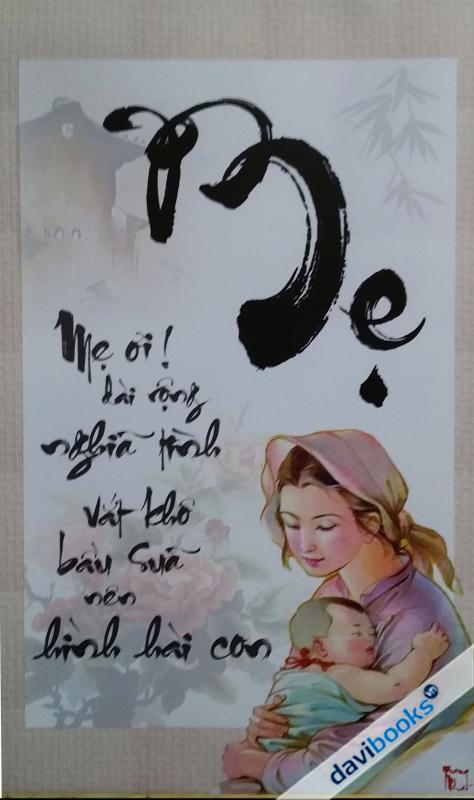 Mẹ
Mẹ ơi!
dài rộng
nghĩa tình
Vắt khô
bầu sữa
nên
hình hài con
davibooks.vn